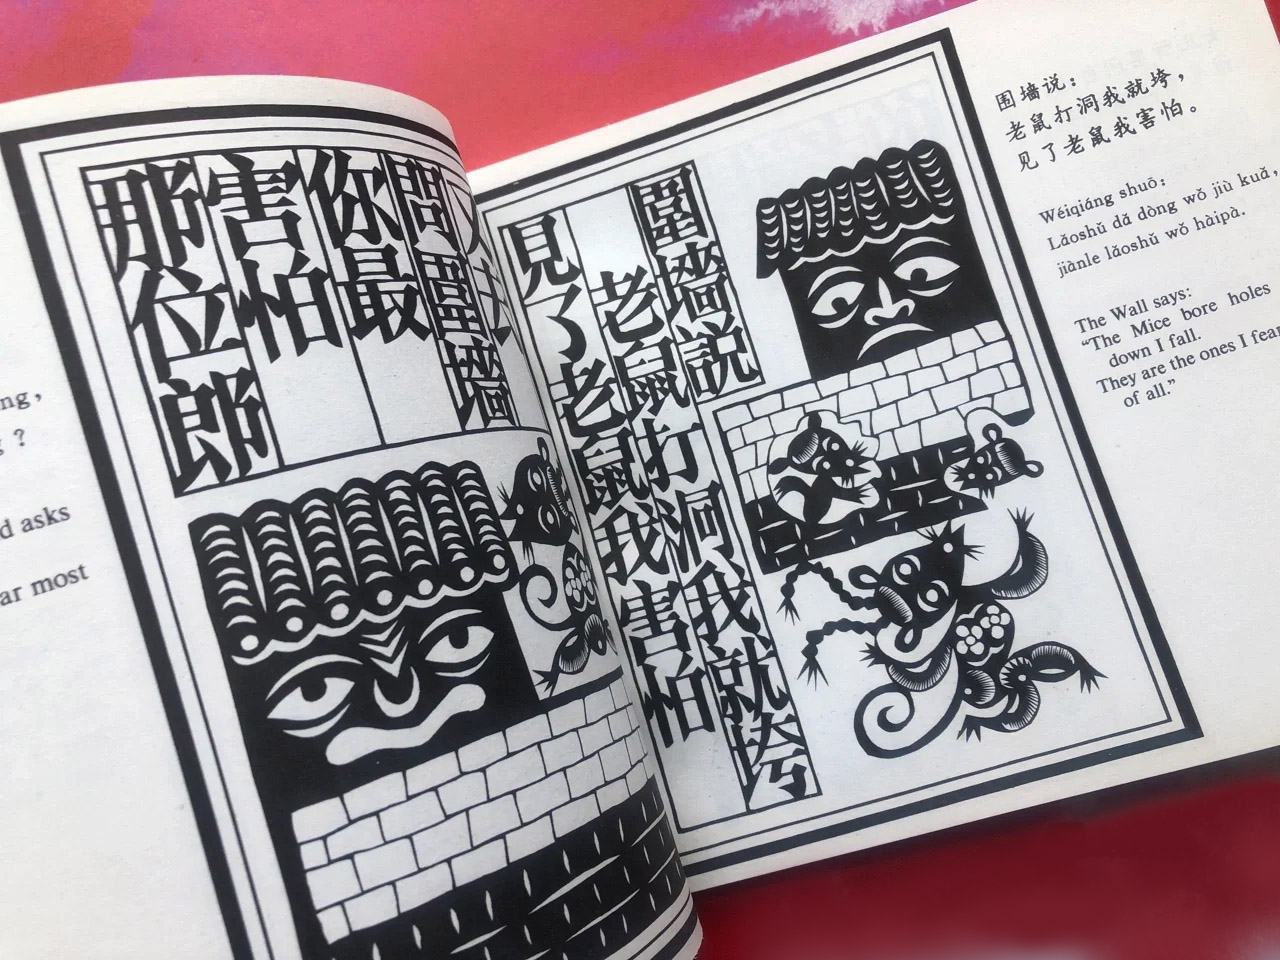 ng,
g ?
d asks
ar most
問圍墻
你最
害怕
那位郎
圍墻説
老鼠打洞我就垮
見了老鼠我害怕
围墙说：
老鼠打洞我就垮，
见了老鼠我害怕。
Wéiqiáng shuō:
Lǎoshǔ dǎ dòng wǒ jiù kuǎ,
jiànle lǎoshǔ wǒ hàipà.
The Wall says:
“The Mice bore holes
down I fall.
They are the ones I fear
of all.”